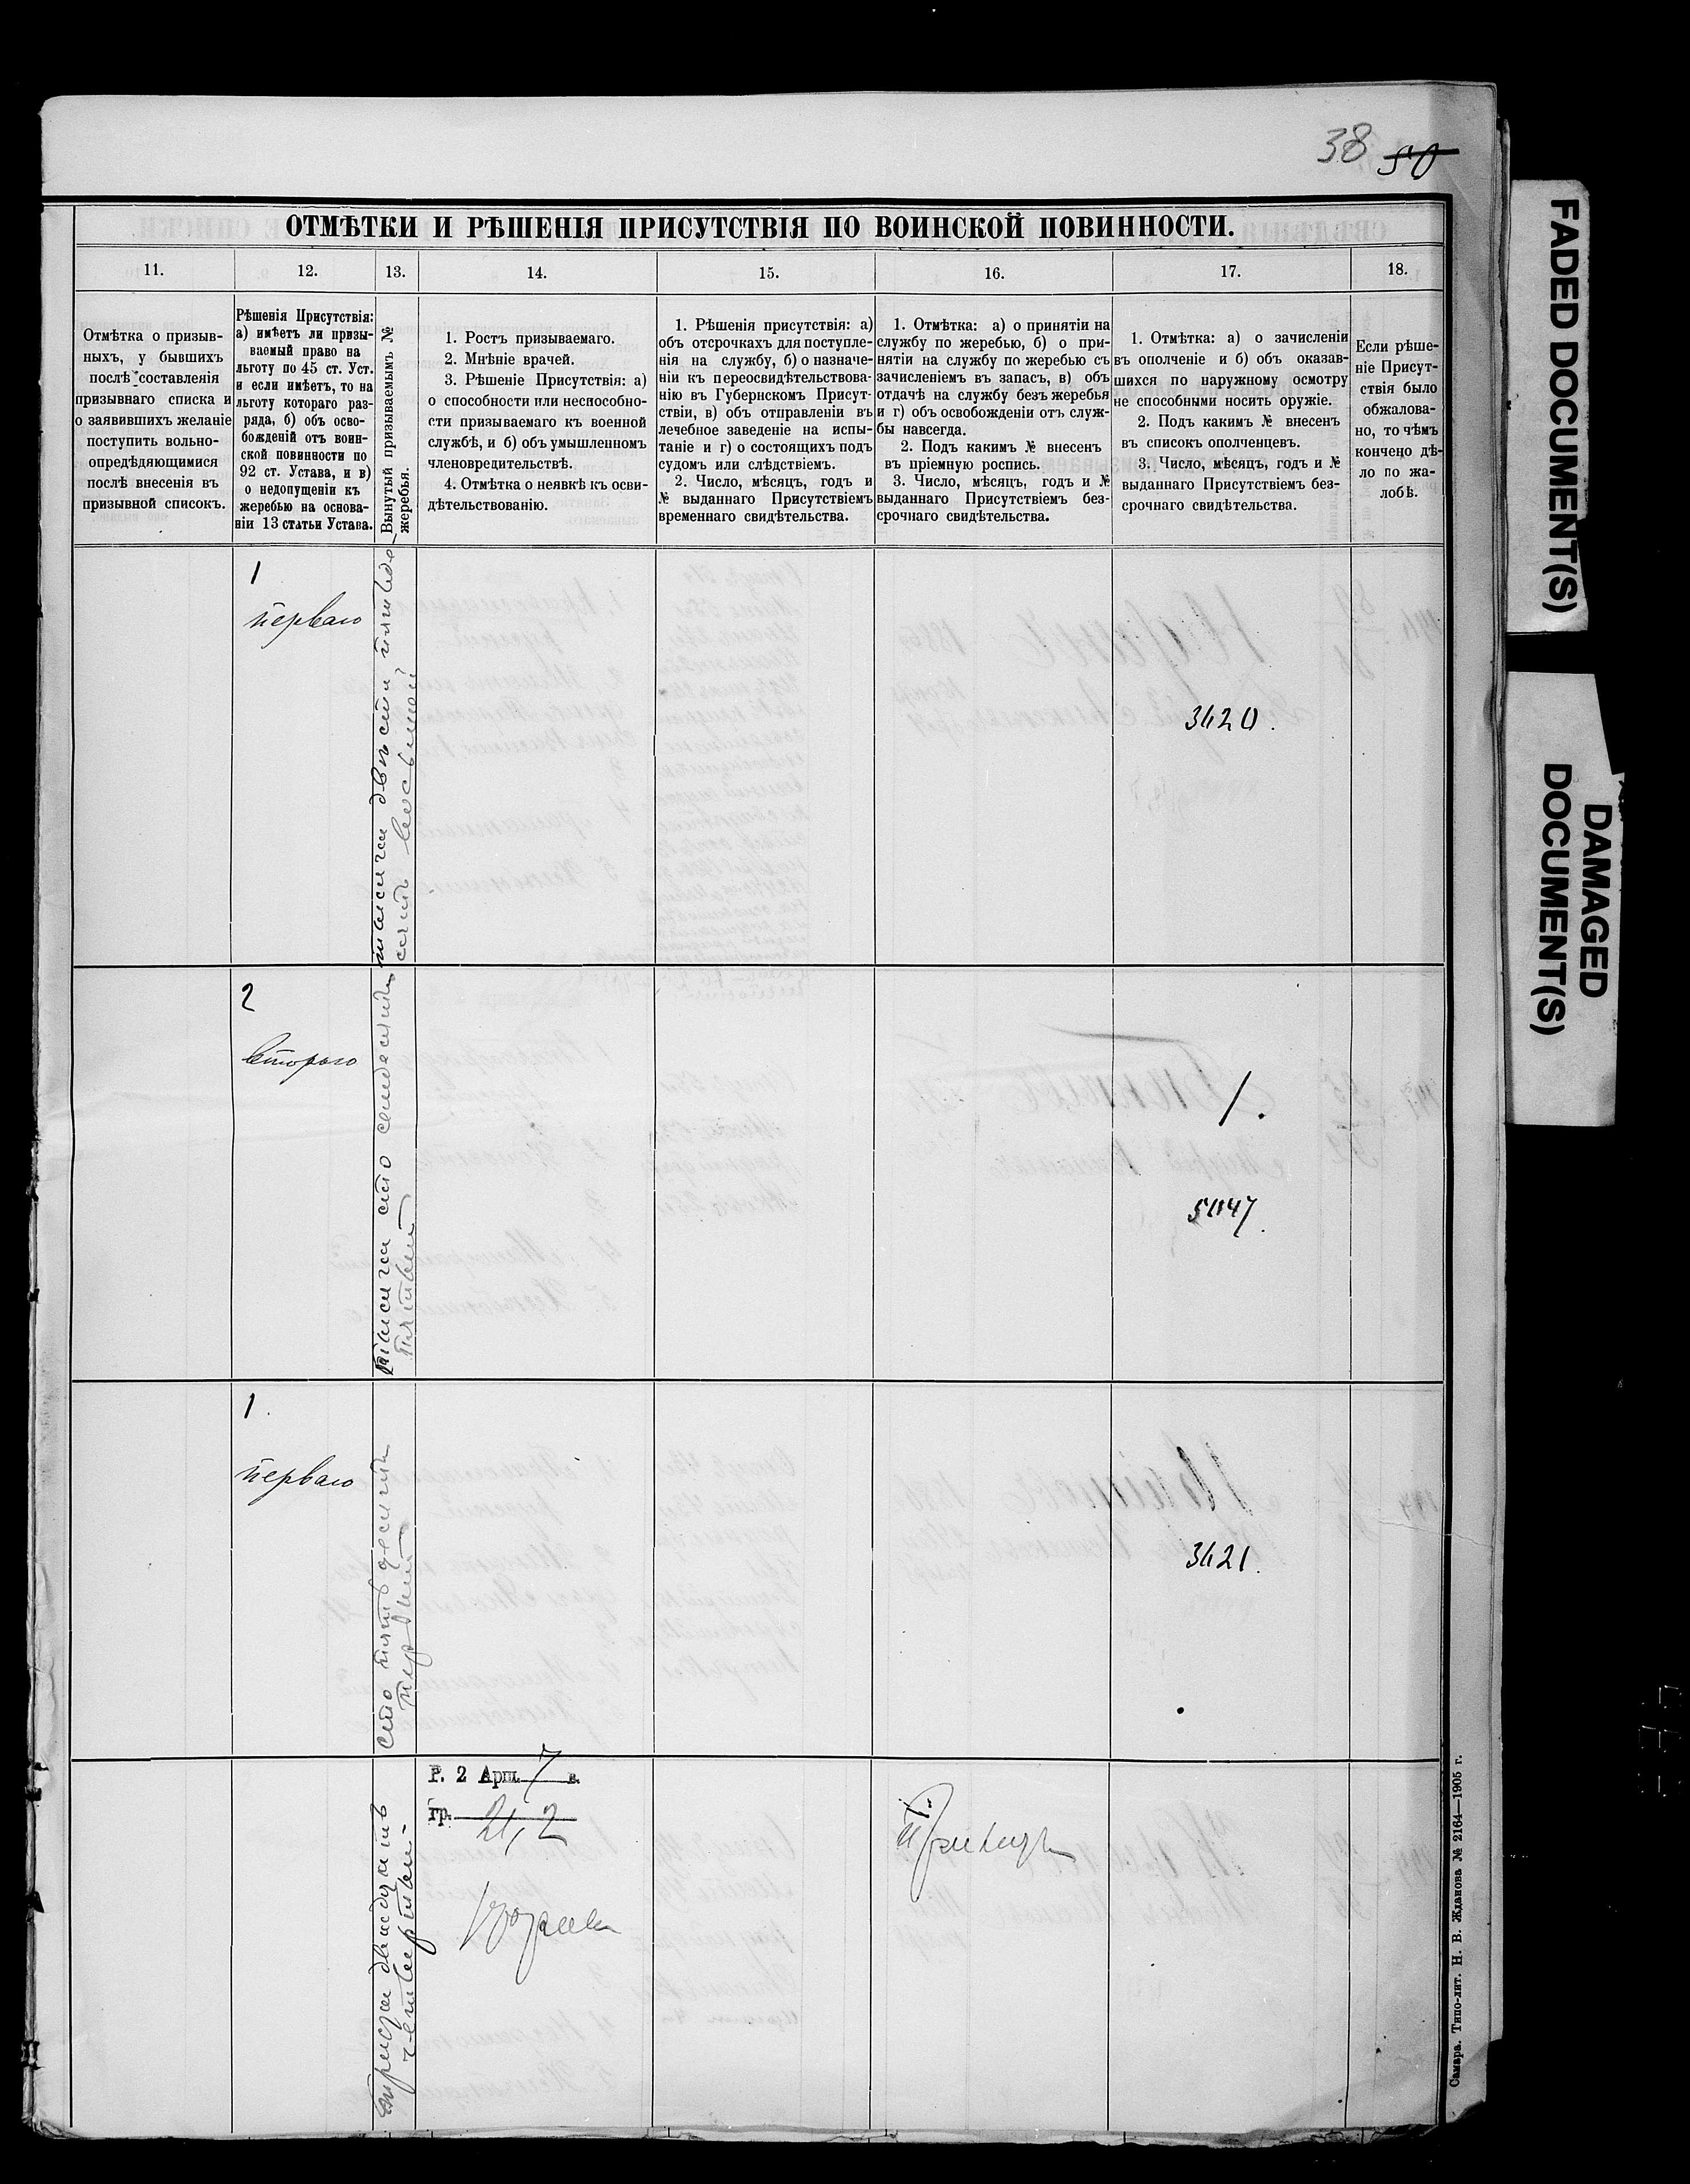 38 50
ОТМѢТКИ И РѢШЕНІЯ ПРИСУТСТВІЯ ПО ВОИНСКОЙ ПОВИННОСТИ.
11.
12.
13.
14.
15.
16.
17.
18.
Отмѣтка о призыв-
ныхъ, у бывшихъ
послѣ составленія
призывнаго списка и
о заявившихъ желаніе
поступить вольно-
опредѣляющимися
послѣ внесенія въ
призывной списокъ.
Рѣшенія Присутствія:
а) имѣетъ ли призы-
ваемый право на
льготу по 45 ст. Уст.
и если имѣетъ, то на
льготу котораго раз-
ряда, б) объ осво-
божденій отъ воин-
ской повинности по
92 ст. Устава, и в)
о недопущеніи къ
жеребью на основа-
ніи 13 статьи Устава.
Вынутый призываемымъ №
жеребья.
1. Ростъ призываемаго.
2. Мнѣніе врачей.
3. Рѣшеніе Присутствія: а)
о способности или неспособно-
сти призываемаго къ военной
службѣ, и б) объ умышленномъ
членовредительствѣ.
4. Отмѣтка о неявкѣ къ осви-
дѣтельствованію.
1. Рѣшенія присутствія: а)
объ отсрочкахъ для поступле-
нія на службу, б) о назначе-
ніи къ переосвидѣтельствова-
нію въ Губернскомъ Присут-
ствіи, в) объ отправленіи въ
лечебное заведеніе на испы-
таніе и г) о состоящихъ подъ
судомъ или слѣдствіемъ.
2. Число, мѣсяцъ, годъ и
№ выданнаго Присутствіемъ
временнаго свидѣтельства.
1. Отмѣтка: а) о принятіи на
службу по жеребью, б) о при-
нятіи на службу по жеребью съ
зачисленіемъ въ запасъ, в) объ
отдачѣ на службу безъ жеребья
и г) объ освобожденіи отъ служ-
бы навсегда.
2. Подъ какимъ № внесенъ
въ пріемную роспись.
3. Число, мѣсяцъ, годъ и №
выданнаго Присутствіемъ без-
срочнаго свидѣтельства.
1. Отмѣтка: а) о зачисленіи
въ ополченіе и б) объ оказав-
шихся по наружному осмотру
не способными носить оружіе.
2. Подъ какимъ № внесенъ
въ списокъ ополченцевъ.
3. Число, мѣсяцъ, годъ и №
выданнаго Присутствіемъ без-
срочнаго свидѣтельства.
Если рѣше-
ніе Присут-
ствія было
обжалова-
но, то чѣмъ
кончено дѣ-
ло по жа-
лобѣ.
1
перваго
тысяча двѣсти пятьде-
сятъ восьмой
3420.
2
второго
тысяча сто семьдесятъ
пятый
1.
5047.
1.
перваго
сто пятьдесятъ
первый
3421.
триста двадцать
четвертый
Р. 2 Арш. 7 в.
гр. 21,2
годенъ
1.
Принятъ
Самара. Типо-лит. Н. В. Жданова № 2164—1905 г.
FADED DOCUMENT(S)
DAMAGED
DOCUMENT(S)